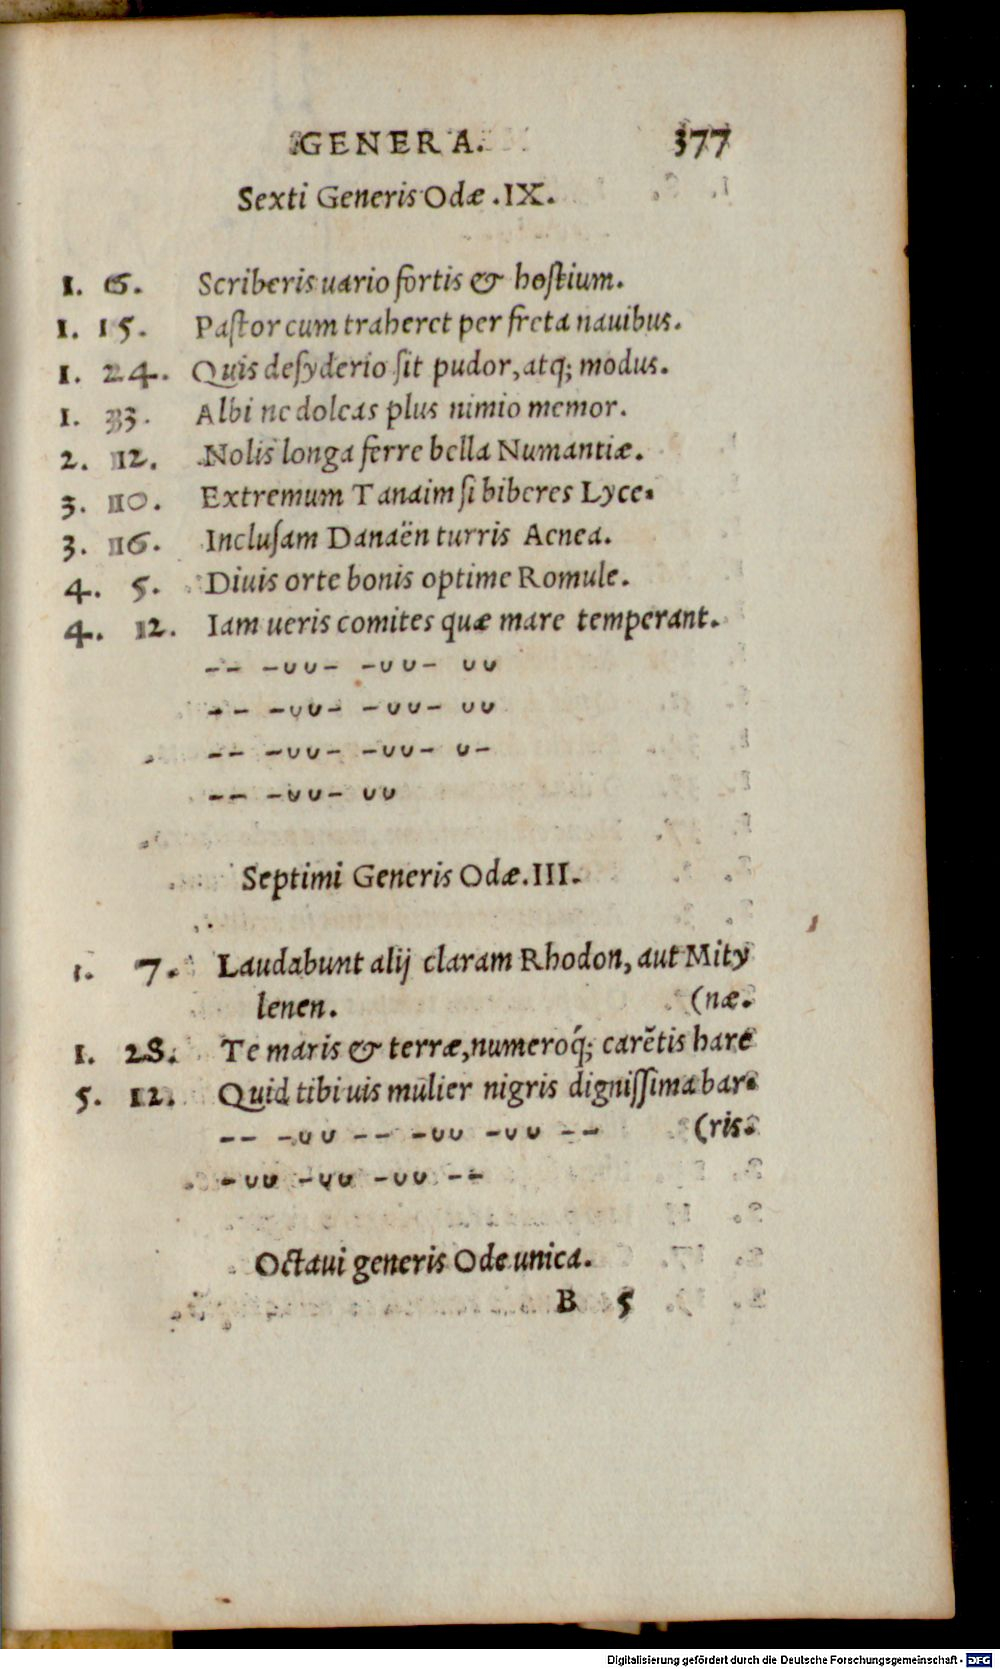 GENERA. 377
Sexti Generis Odæ .IX.
1. 6. Scriberis uario fortis & hostium.
1. 15. Pastor cum traheret per freta nauibus.
1. 24. Quis desyderio sit pudor, atq; modus.
1. 33. Albi ne doleas plus nimio memor.
2. 12. Nolis longa ferre bella Numantiæ.
3. 10. Extremum Tanaim si biberes Lyce.
3. 16. Inclusam Danaën turris Aenea.
4. 5. Diuis orte bonis optime Romule.
4. 12. Iam ueris comites quæ mare temperant.
-- -∪∪- -∪∪- ∪∪
-- -∪∪- -∪∪- ∪∪
-- -∪∪- -∪∪- ∪-
-- -∪∪- ∪∪
Septimi Generis Odæ.III.
1. 7. Laudabunt alij claram Rhodon, aut Mity
lenen. (næ.
1. 28. Te maris & terræ, numeroq́; carẽtis hare
5. 12. Quid tibi uis mulier nigris dignissima bar.
-- -∪∪ -- -∪∪ -∪∪ -- (ris.
-∪∪ -∪∪ -∪∪ --
Octaui generis Ode unica.
B 5
Digitalisierung gefördert durch die Deutsche Forschungsgemeinschaft - DFG